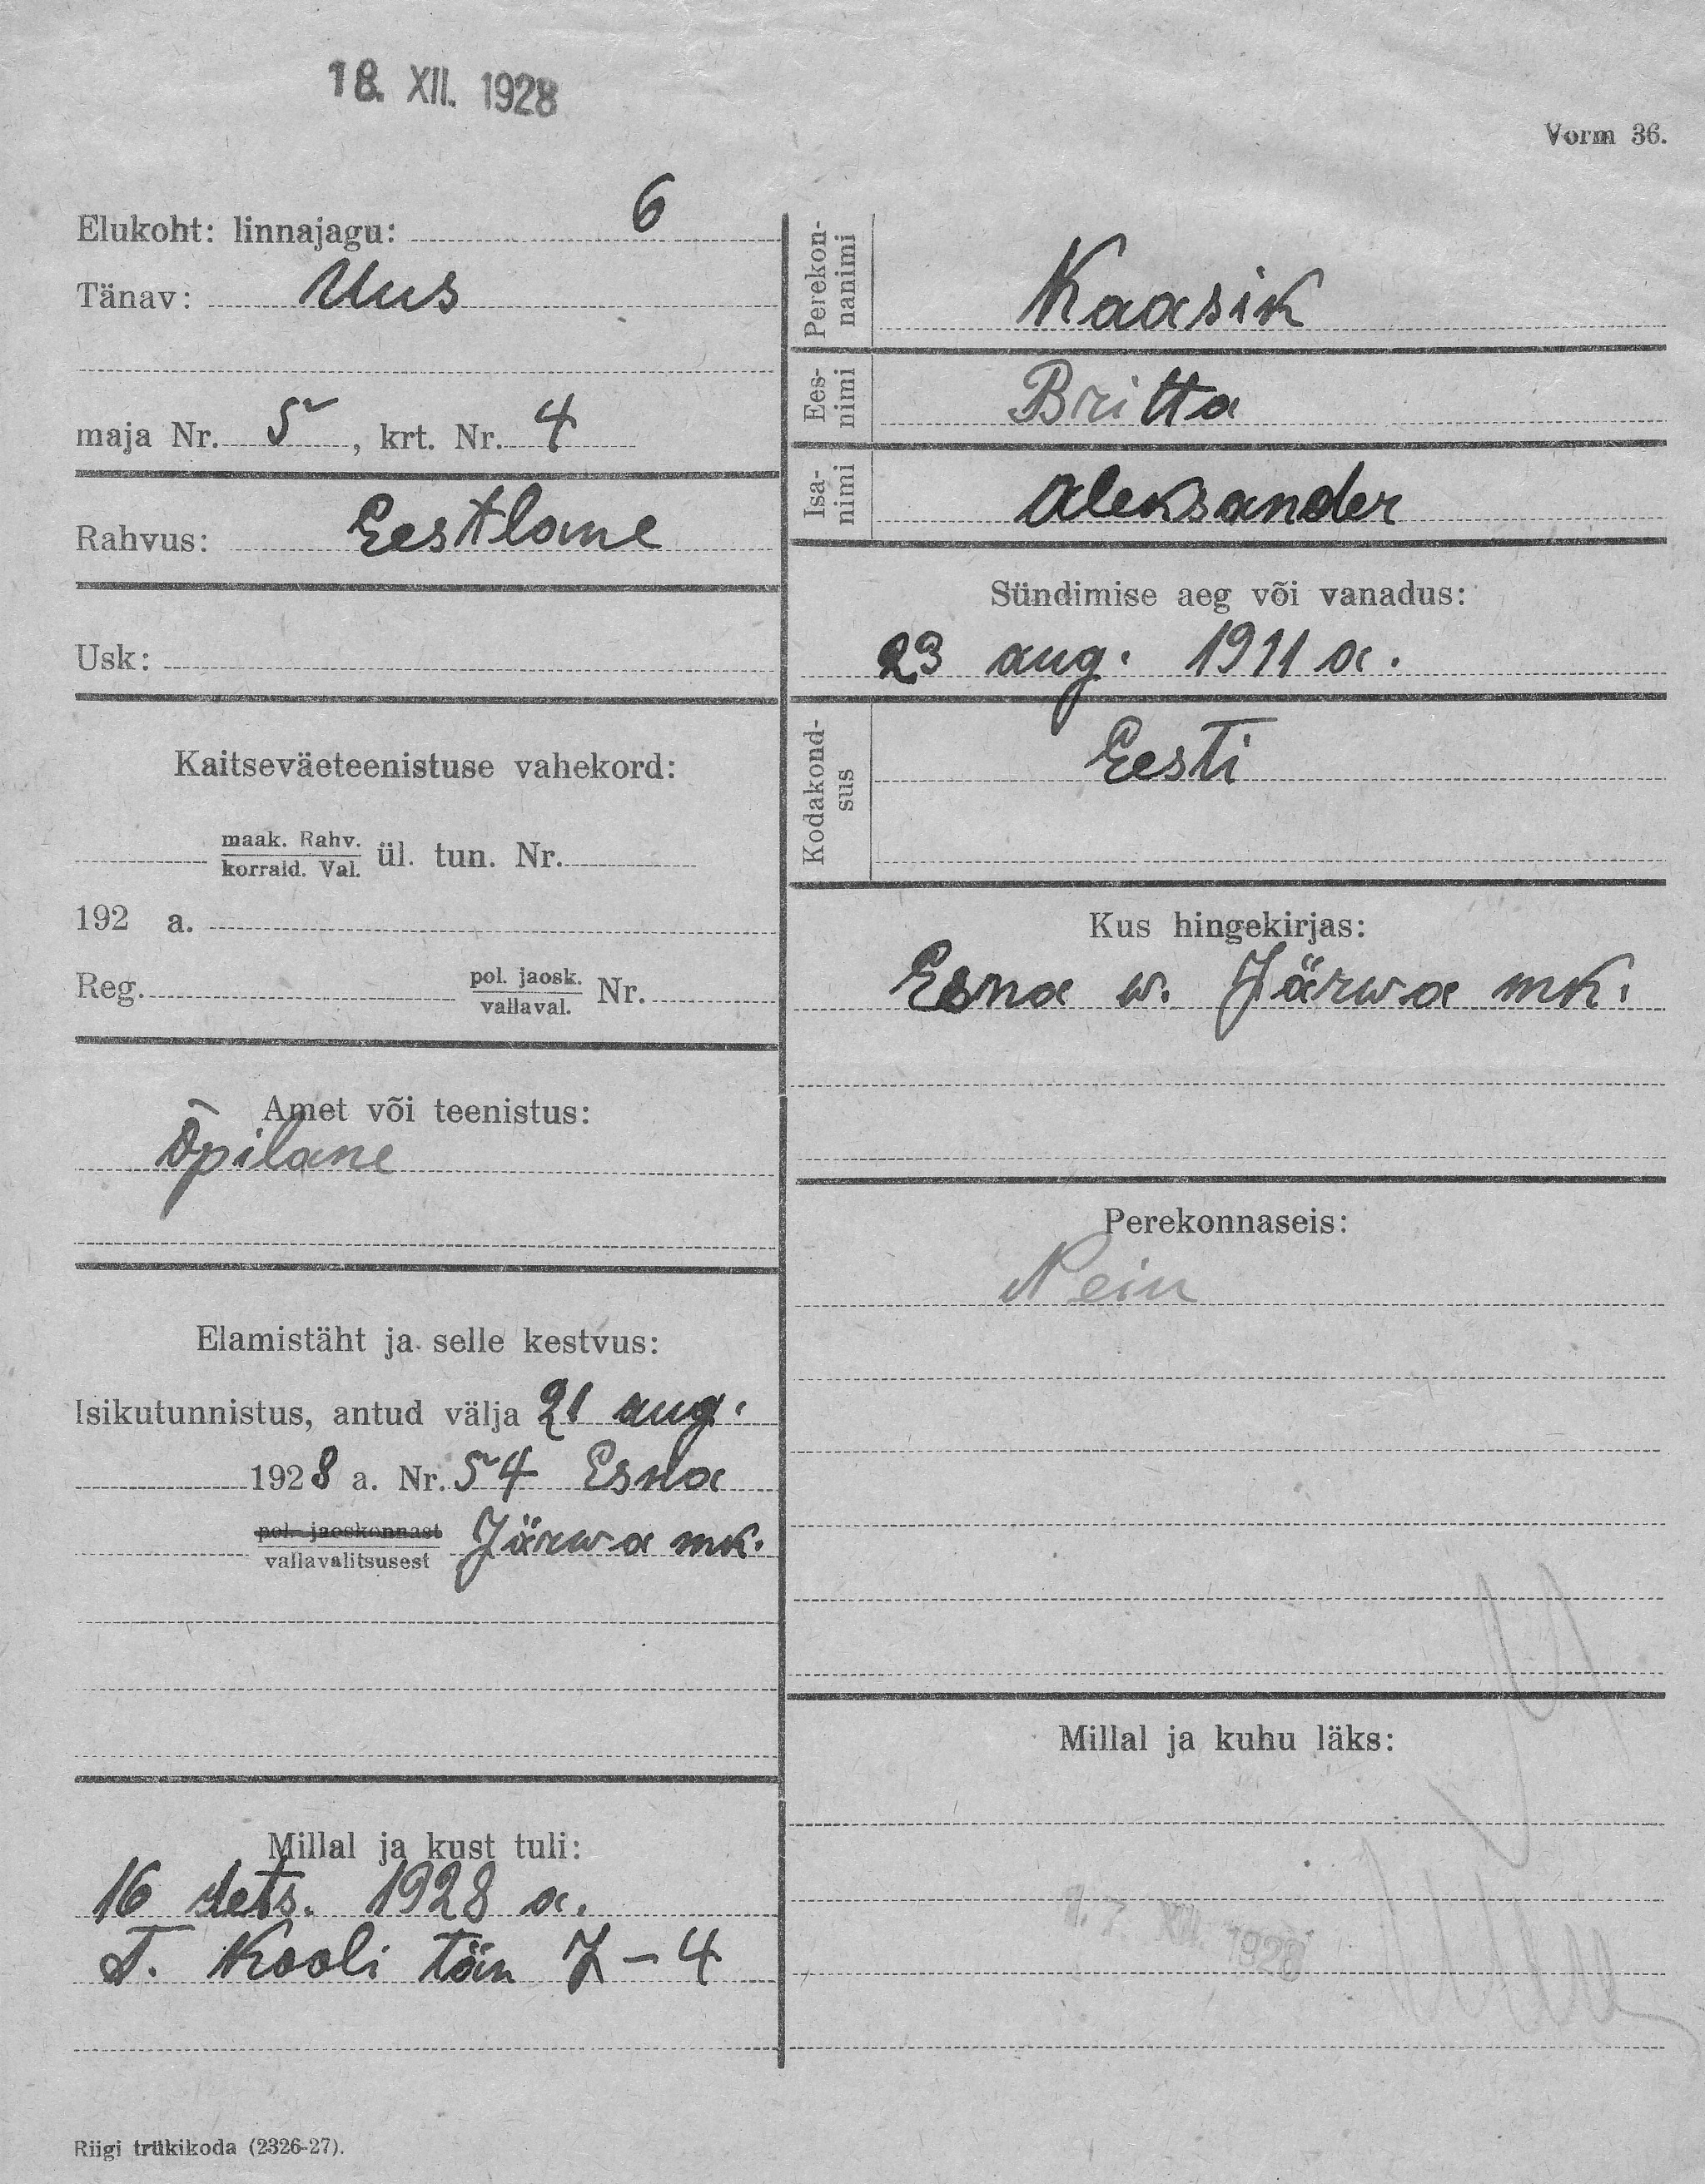 18. XII. 1928
Vorm 36.
Elukoht: linnajagu: 6
Tänav: Uus
maja Nr. 5, krt. Nr. 4
Rahvus: Eestlane
Usk:
Kaitseväeteenistuse vahekord:
maak. Rahv.
korrald. Val. ül. tun. Nr.
192 a.
Reg. pol. jaosk.
vallaval. Nr.
Amet või teenistus:
Õpilane
Elamistäht ja selle kestvus:
Isikutunnistus, antud välja 21 aug.
1928 a. Nr. 54 Esna
pol. jaoskonnast
vallavalitsusest Järwa mk.
Millal ja kust tuli:
16 dets. 1928 a.
T. Kooli tän 7-4
Perekon-
nanimi
Kaasik
Ees-
nimi
Britta
Isa-
nimi
Aleksander
Sündimise aeg või vanadus:
23 aug. 1911 a.
Kodakond-
sus
Eesti
Kus hingekirjas:
Esna w. Järwa mk.
Perekonnaseis:
Nein
Millal ja kuhu läks:
17. XII. 1928
Riigi trükikoda (2326-27).